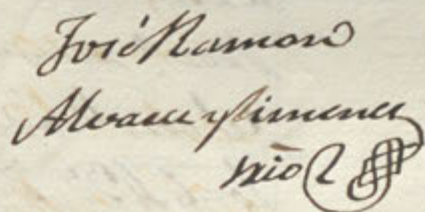 José Ramon
Alvarez y Jimenez